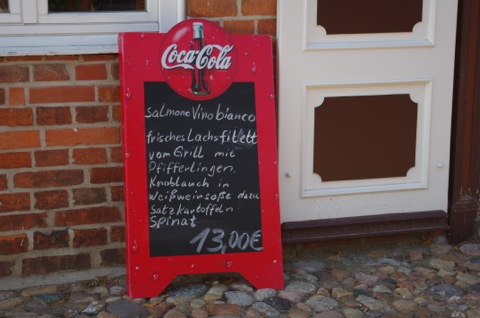 Coca-Cola
Salmone Vino bianco
frisches Lachsfilett
vom Grill mit
Pfifferlingen,
Knoblauch in
Weißweinsoße dazu
Salzkartoffeln
Spinat
13,00€